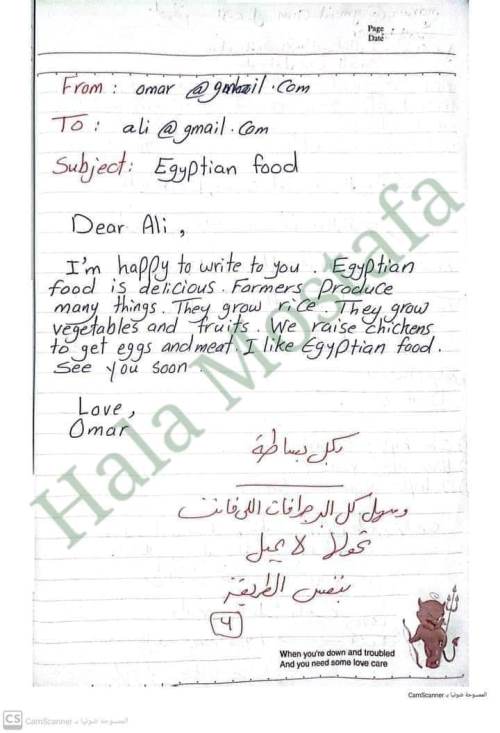 Page
Date
From : omar @gmail.com
To : ali @ gmail.com
Subject: Egyptian food
Dear Ali ,
I'm happy to write to you . Egyptian
food is delicious. Farmers Produce
many things. They grow rice. They grow
vegetables and fruits. We raise chickens
to get eggs and meat. I like Egyptian food.
See you soon .
Love,
Omar
بكل بساطة
وسهل كل البرجرافات اللي فاتت
تحولا لايميل
بنفس الطريقة
4
When you're down and troubled
And you need some love care
Hala Mostafa
الممسوحة ضوئيا بـ CamScanner
CS CamScanner الممسوحة ضوئيا بـ